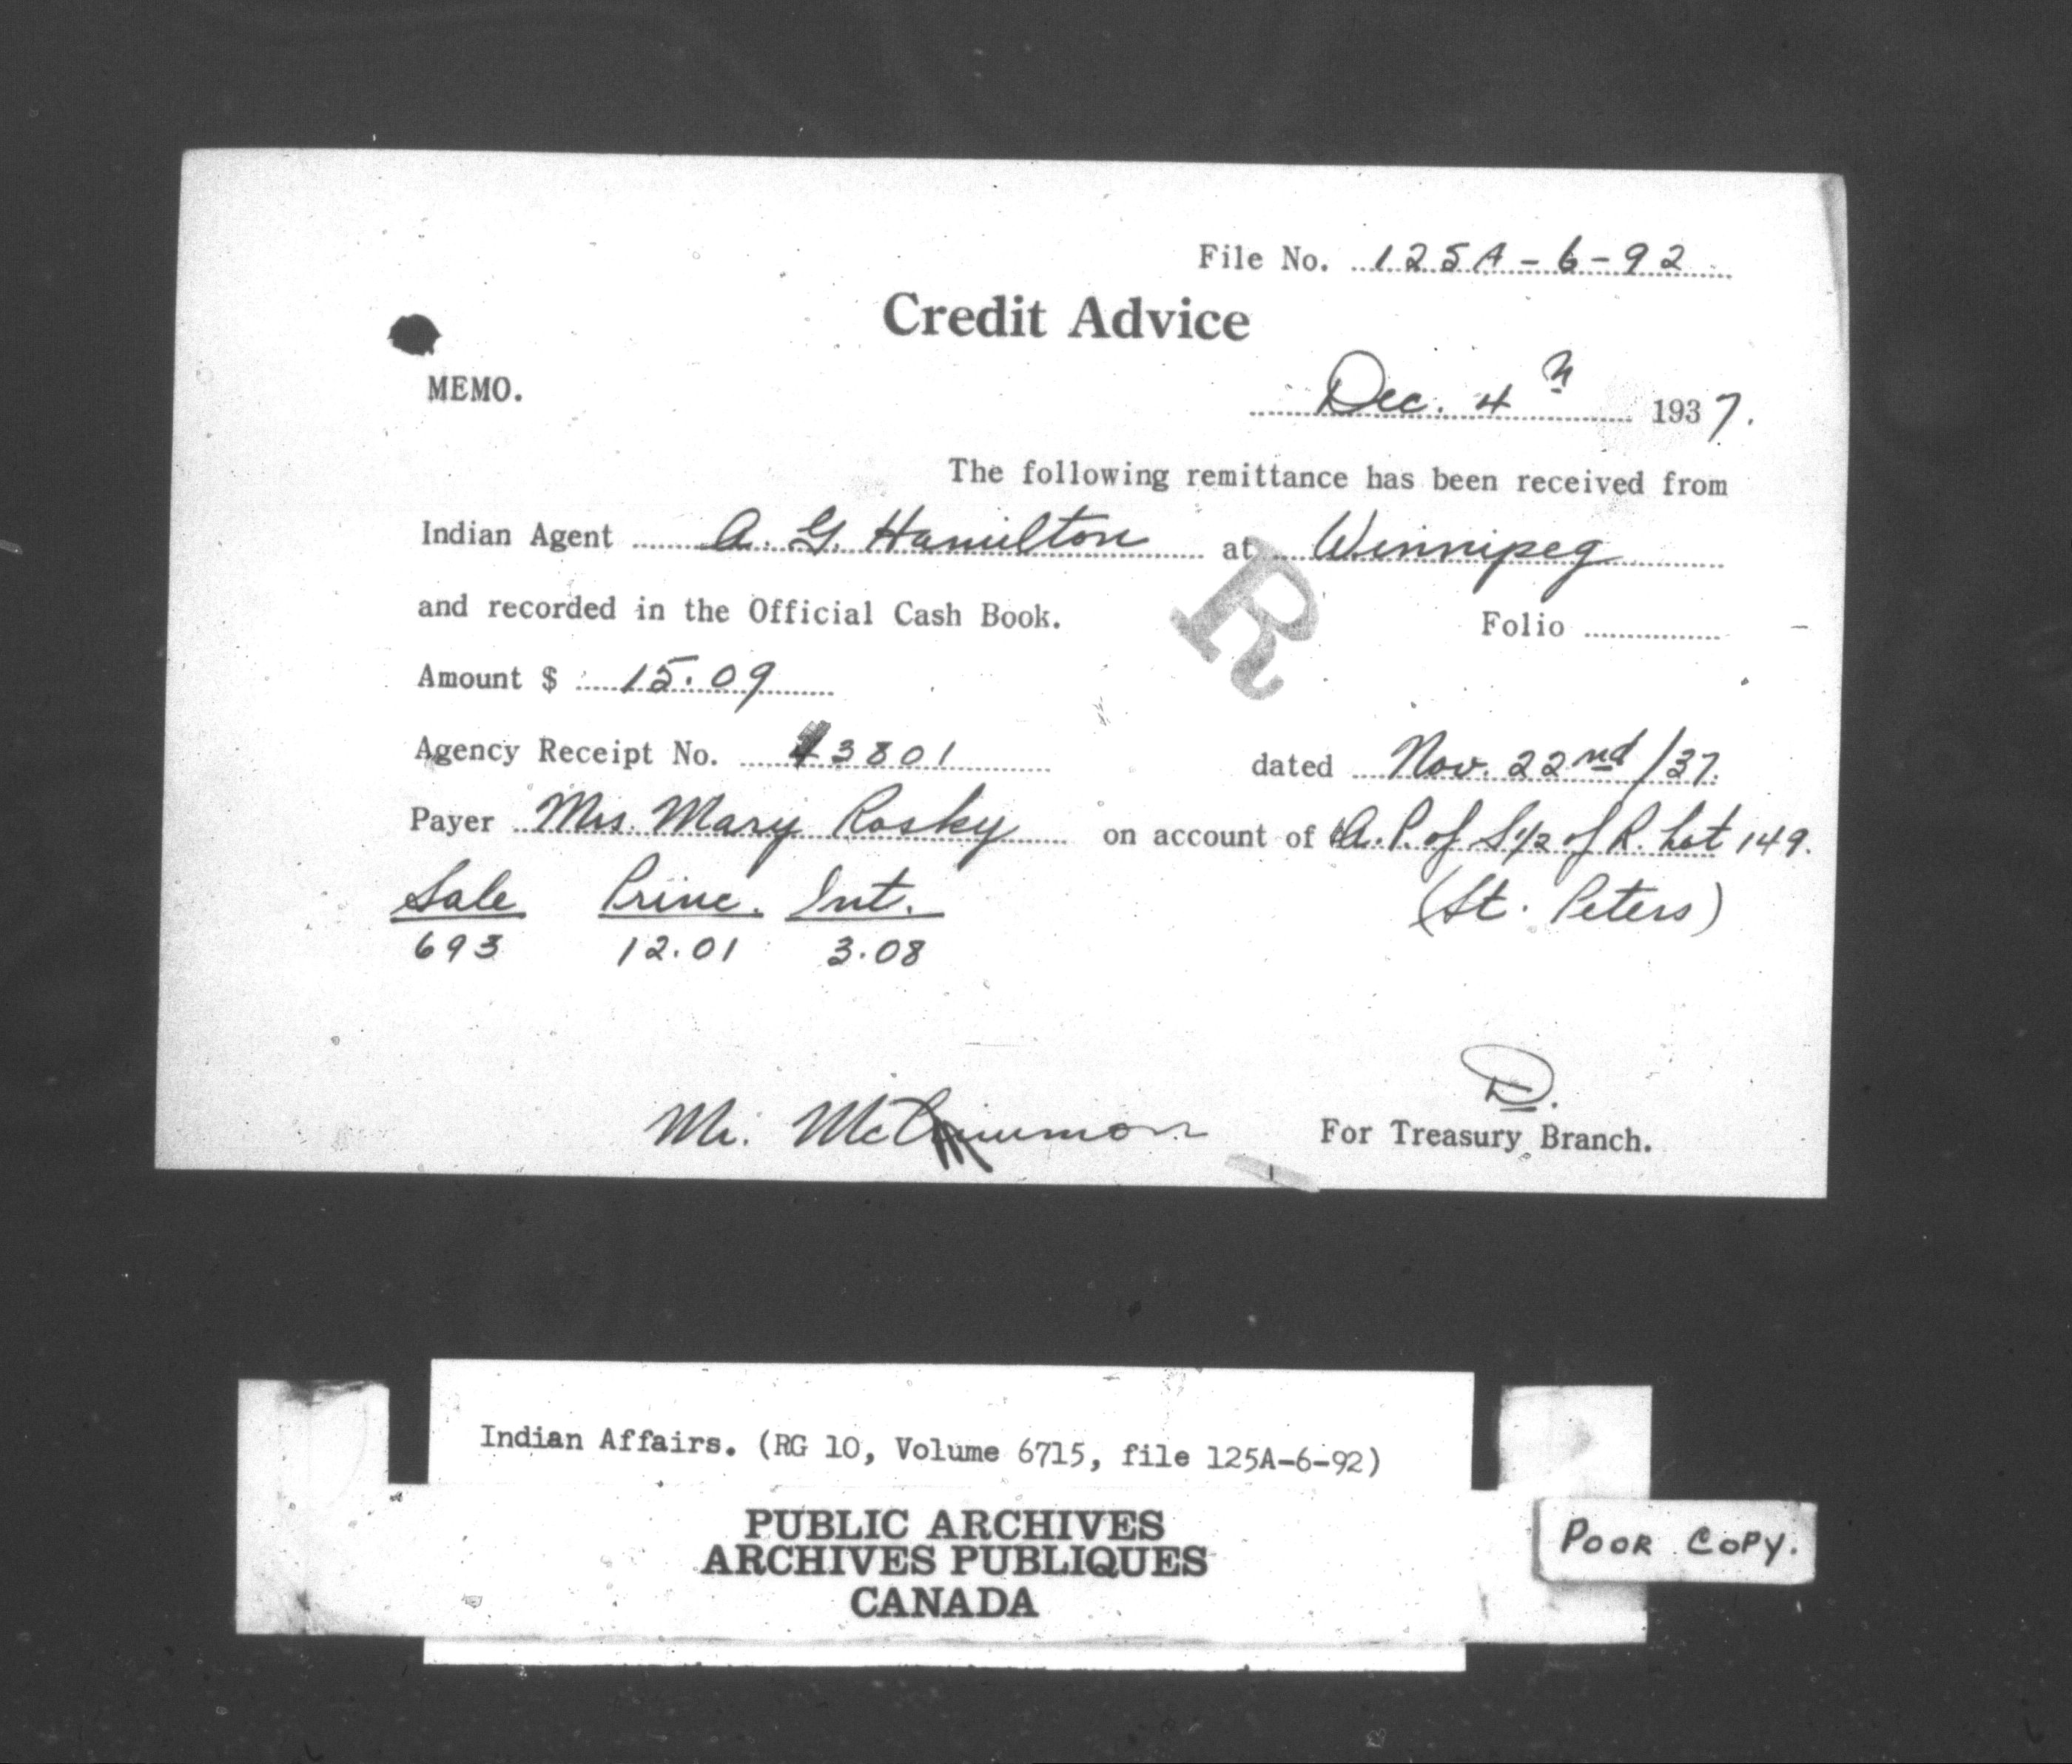 File No. 125A-6-92
Credit Advice
MEMO.
Dec. 4th 1937.
The following remittance has been received from
Indian Agent A. G. Hamilton at Winnipeg
R
and recorded in the Official Cash Book. Folio
Amount $ 15.09
Agency Receipt No. 43801 dated Nov. 22nd/37.
Payer Mrs. Mary Rosky on account of A.P. of S½ of R. Lot 149.
Sale Princ. Int. (St. Peters)
693 12.01 3.08
D.
Mr. McCrimmon For Treasury Branch.
Indian Affairs. (RG 10, Volume 6715, file 125A-6-92)
PUBLIC ARCHIVES
ARCHIVES PUBLIQUES
CANADA
POOR COPY.